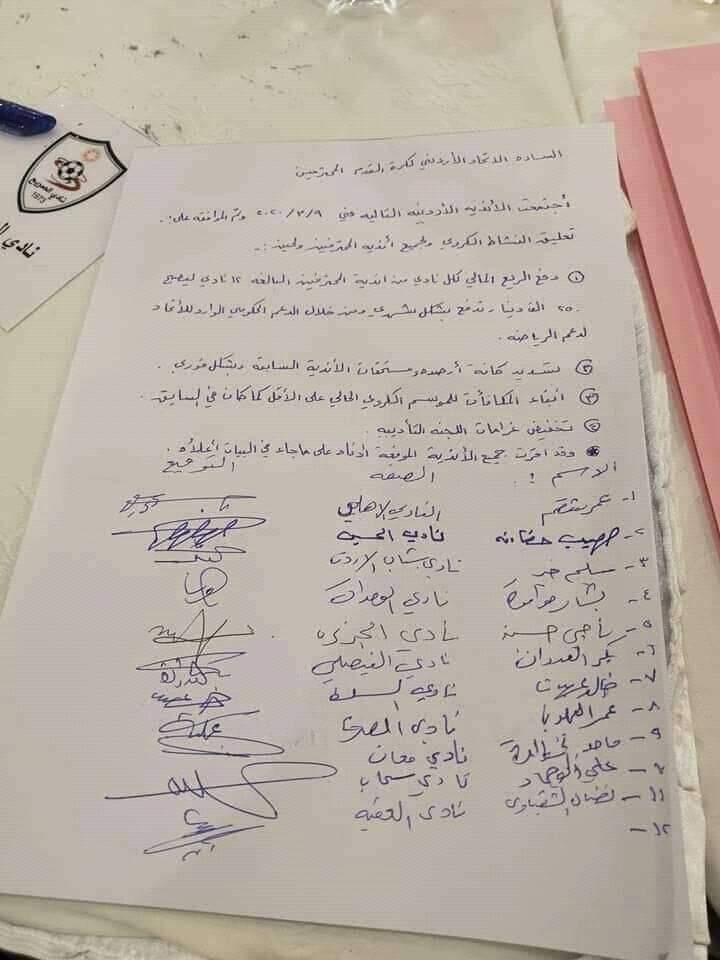 الساده الاتحاد الأردني لكرة القدم المحترمين
أجتمعت الأندية الأردنيه التاليه في ٢٠٢٠/٣/٩ وتم الموافقه على:.
تعليق النشاط الكروي لجميع أندية المحترفين لحين:-
١ دفع الريع المالي لكل نادي من اندية المحترفين البالغه ١٢ نادي ليصبح
٢٥٠ الف دينار تدفع بشكل شهري ومن خلال الدعم الحكومي الوارد للأتحاد
لدعم الرياضه.
٢ تسديد كافة أرصده ومستحقات الأندية السابقة وبشكل فوري.
٣ أبقاء المكافآت للموسم الكروي الحالي على الأقل كما كان في السابق.
٤ تخفيض غرامات اللجنه التأديبيه.
وقد اقرت جميع الأندية الموقعة أدناه على ماجاء في البيان أعلاه.
الاسم : الصفه التوقيع
١- عمر النادي الاهلي
٢- صهيب نادي الحسين
٣- سليم خير نادي شباب الاردن
٤- بشار حوامدة نادي الوحدات
٥- ناجي نادي الجزيره
٦- بكر العدوان نادي الفيصلي
٧- خالد عربيات نادي السلط
٨- عمر نادي الصريح
٩- ماجد نادي معان
علي نادي سحاب
١١- نضال نادي العقبه
١٢-
نادي الصريح
1973
نادي ال